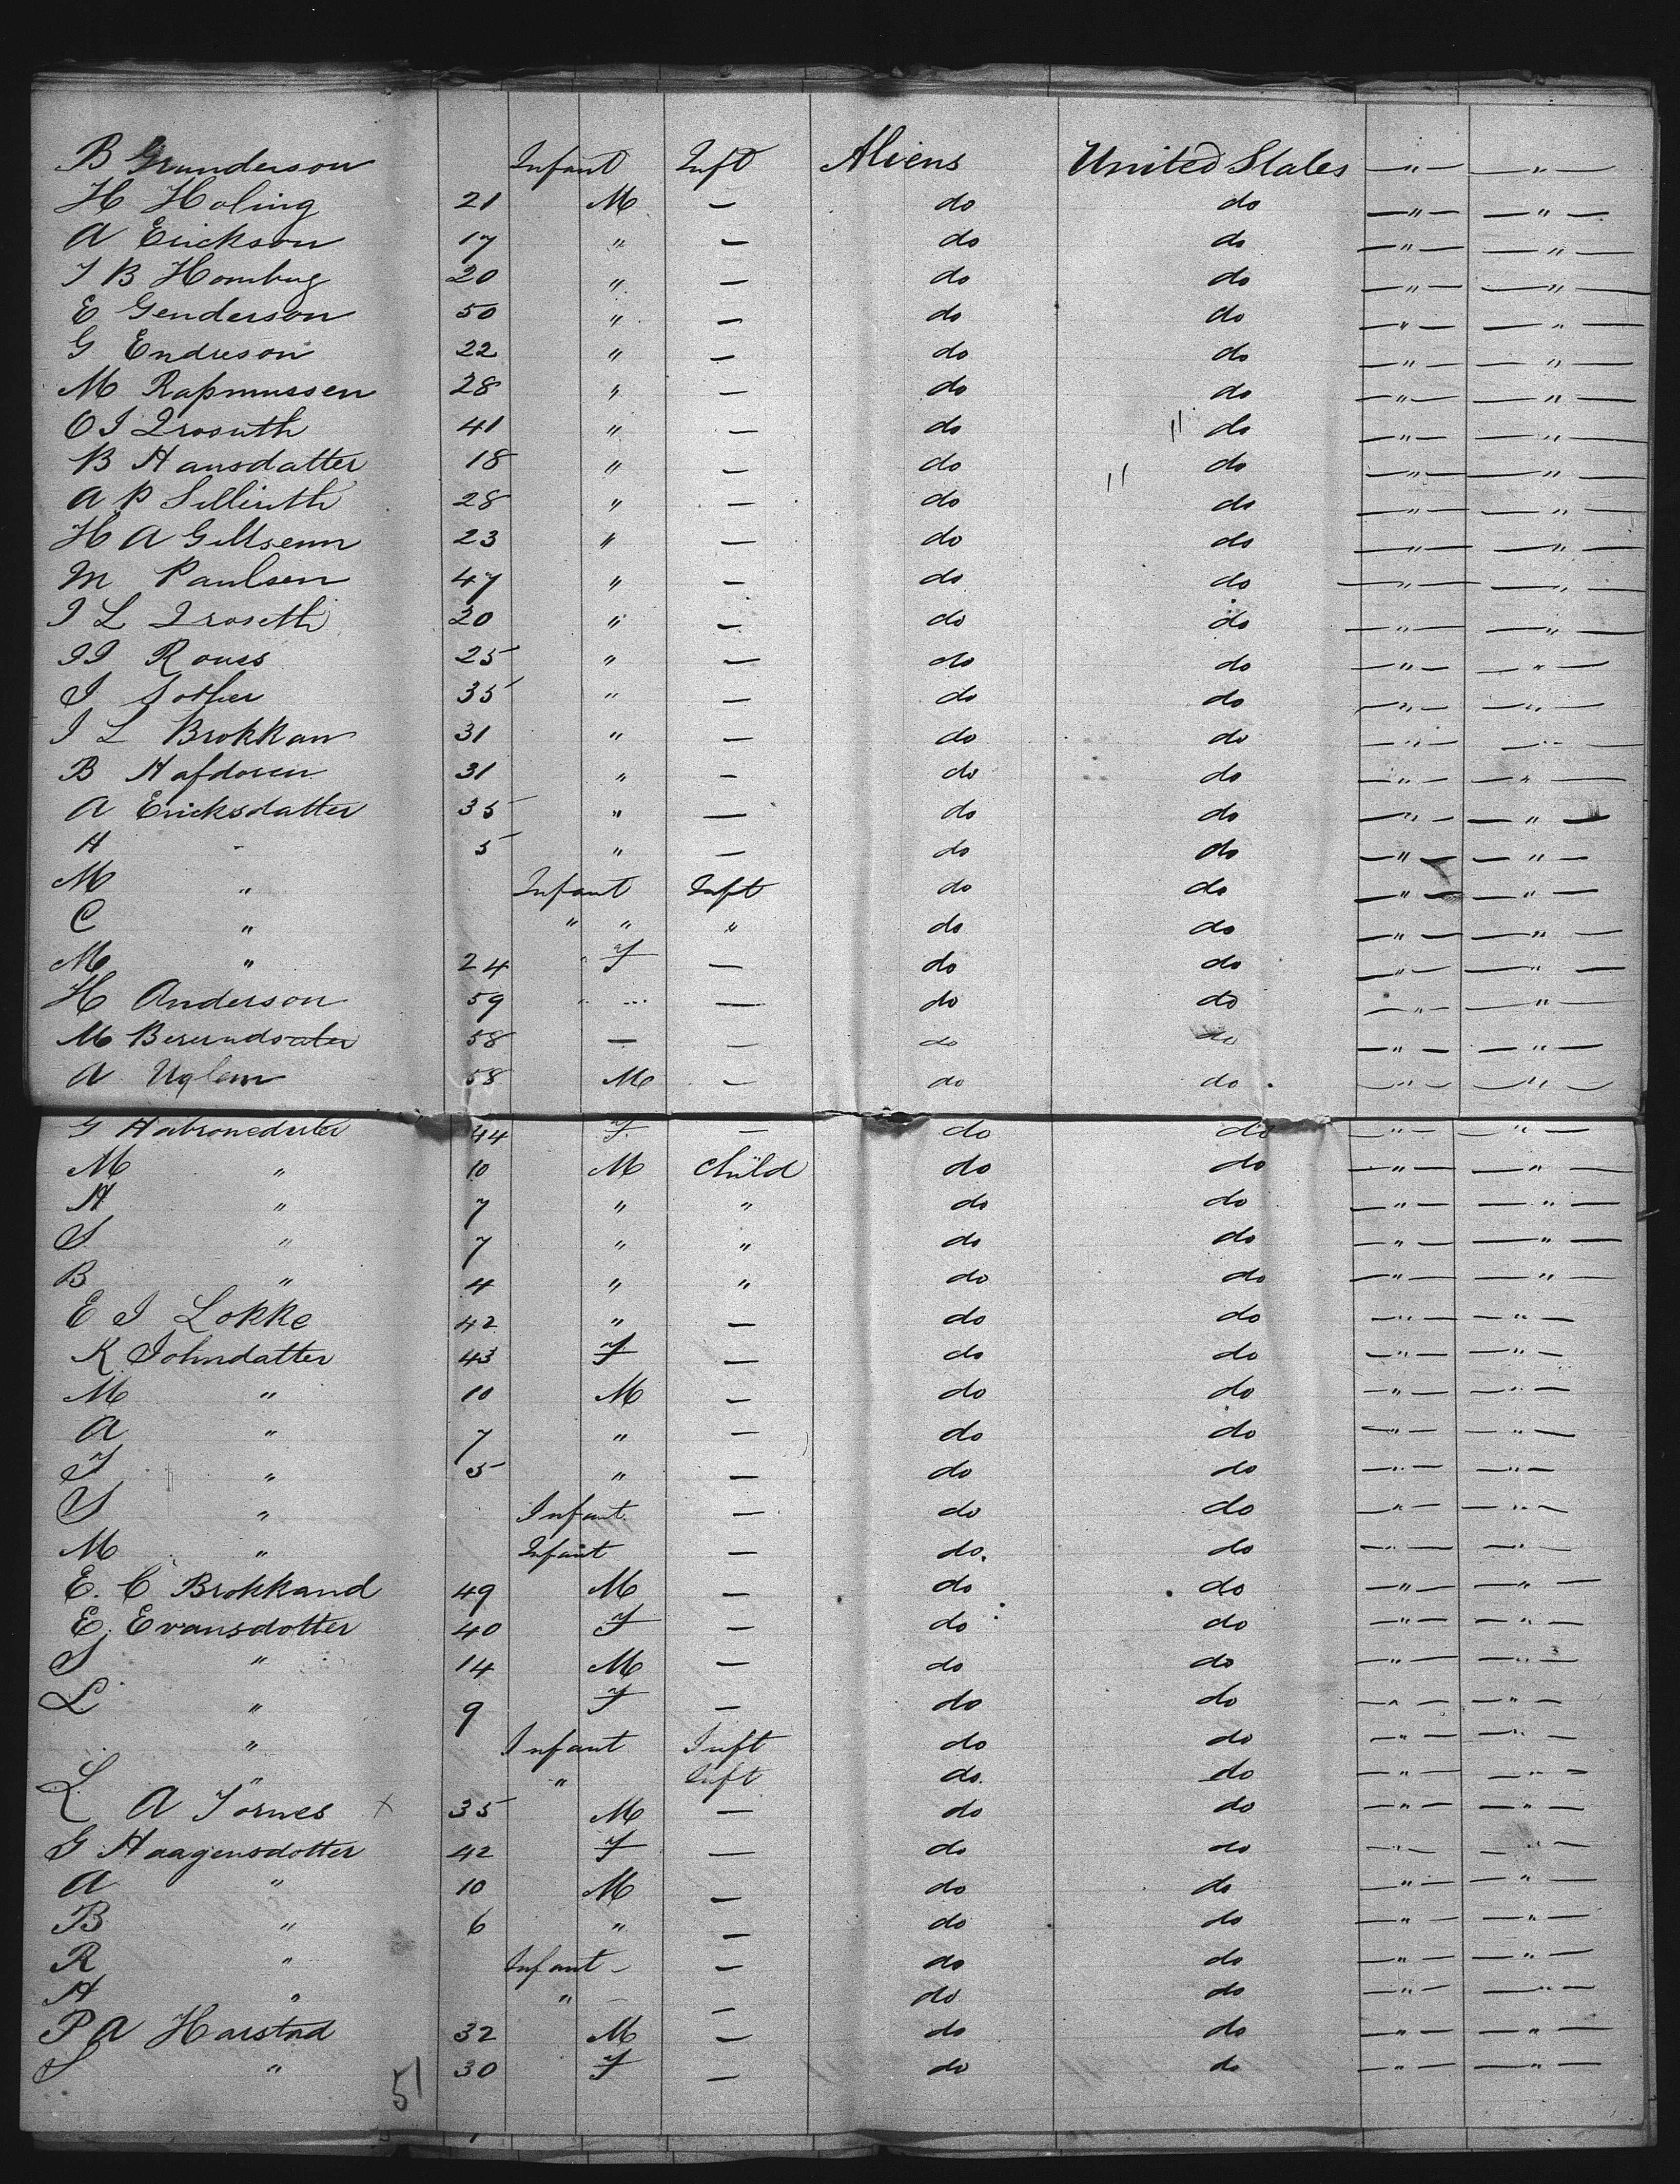 B Grunderson Infant Inft Aliens United States — " — — " —
H Holing 21 M — do do — " — — " —
A Erickson 17 " — do do — " — — " —
J B Hombug 20 " — do do — " — — " —
E Genderson 50 " — do do — " — — " —
G Endreson 22 " — do do — " — — " —
M Rasmussen 28 " — do do — " — — " —
O I 41 " — do " do — " — — " —
B Hansdatter 18 " — do " do — " — — " —
A P Sillinth 28 " — do do — " — — " —
H A 23 " — do do — " — — " —
M Paulsen 47 " — do do — " — — " —
I L 20 " — do do — " — — " —
II Roues 25 " — do do — " — — " —
I Sother 35 " — do do — " — — " —
I L Brokkan 31 " — do do — " — — " —
B Hafdoren 31 " — do do — " — — " —
A Ericksdatter 35 " — do do — " — — " —
H - 5 " — do do — " — — " —
M " Infant Inft do do — " — — " —
C " " " " do do — " — — " —
M " 24 " F — do do — " — — " —
H Anderson 59 " " — do do — " — — " —
M 58 — — do do — " — — " —
A Uglem 58 M — do do — " — — " —
G 44 F. — do do — " — — " —
M " 10 M Child do do — " — — " —
H " 7 " " do do — " — — " —
S " 7 " " do do — " — — " —
B " 4 " " do do — " — — " —
E I Lokke 42 " — do do — " — — " —
K Johndatter 43 F — do do — " — — " —
M " 10 M — do do — " — — " —
A " 7 " — do do — " — — " —
J " 5 " — do do — " — — " —
S " Infant. — do do — " — — " —
M " Infant — do. do — " — — " —
E. C Brokkand 49 M — do do — " — — " —
E. Evansdotter 40 F — do do — " — — " —
S " 14 M — do do — " — — " —
L " 9 F — do do — " — — " —
" Infant Inft do do — " — — " —
" " Inft do. do — " — — " —
L A Fornes x 35 M — do do — " — — " —
G Haagensdotter 42 F — do do — " — — " —
A " 10 M — do do — " — — " —
B " 6 " — do do — " — — " —
R " Infant — — do do — " — — " —
H " " — — do do — " — — " —
P A Harstad 32 M — do do — " — — " —
S " 30 F — do do — " — — " —
51